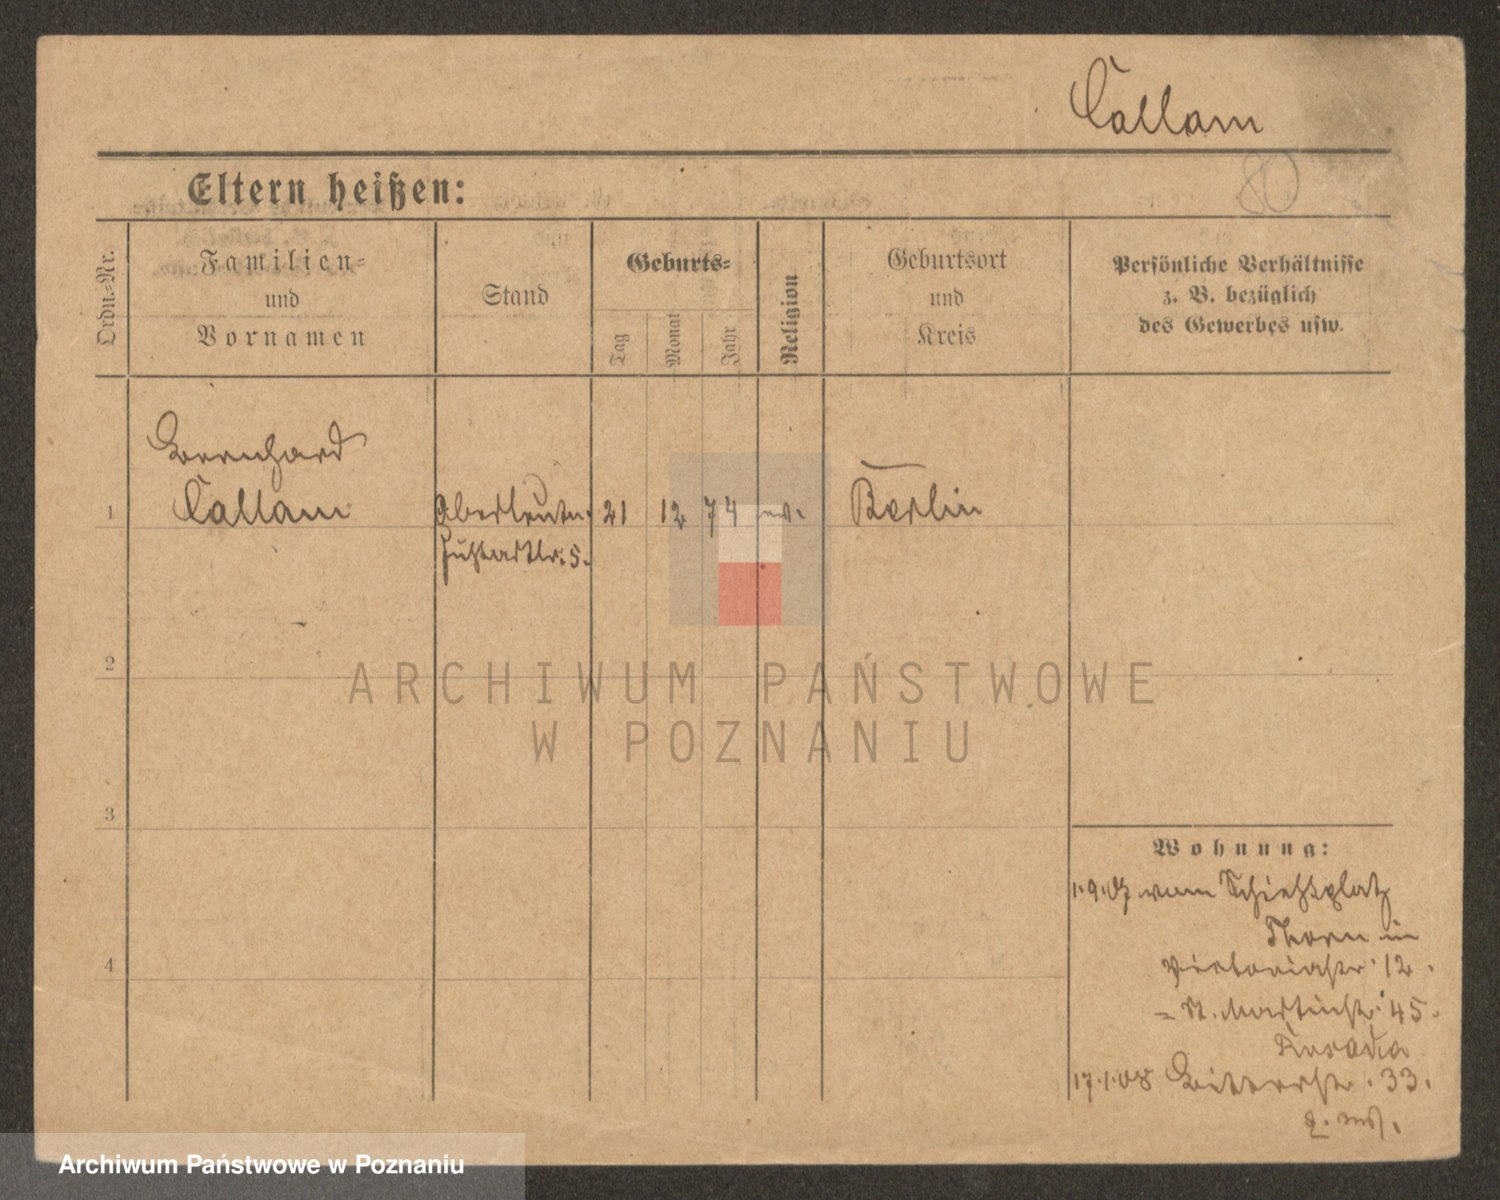 Callam
80
Eltern heißen:
Ordn.-Nr.
Familien-
und
Vornamen
Stand
Geburts-
Tag
Monat
Jahr
Religion
Geburtsort
und
Kreis
Persönliche Verhältnisse
z. B. bezüglich
des Gewerbes usw.
Bernhard
1 Callam Oberleutn. 21 12 74 ev. Berlin
2
3
4
Wohnung:
1.9.07 vom Schießplatz
Thorn in
Victoriastr. 12.
= St. Martinstr. 45.
17.1.08 Bitterstr. 33.
ARCHIWUM PAŃSTWOWE
W POZNANIU
Archiwum Państwowe w Poznaniu